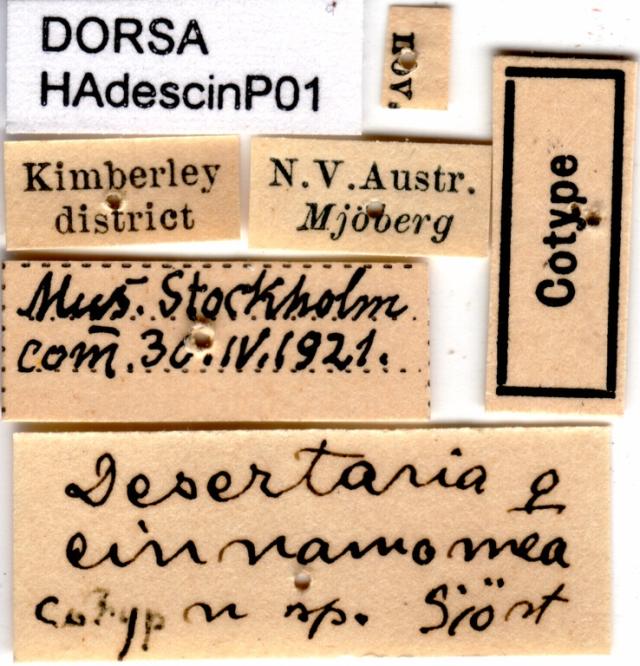 DORSA
HAdescinP01
Nov.
Kimberley
district
N.V.Austr.
Mjöberg
Cotype
Mus. Stockholm
com̄. 30.IV.1921.
Desertaria ♀
cinnamomea
cotyp n sp. Sjöst